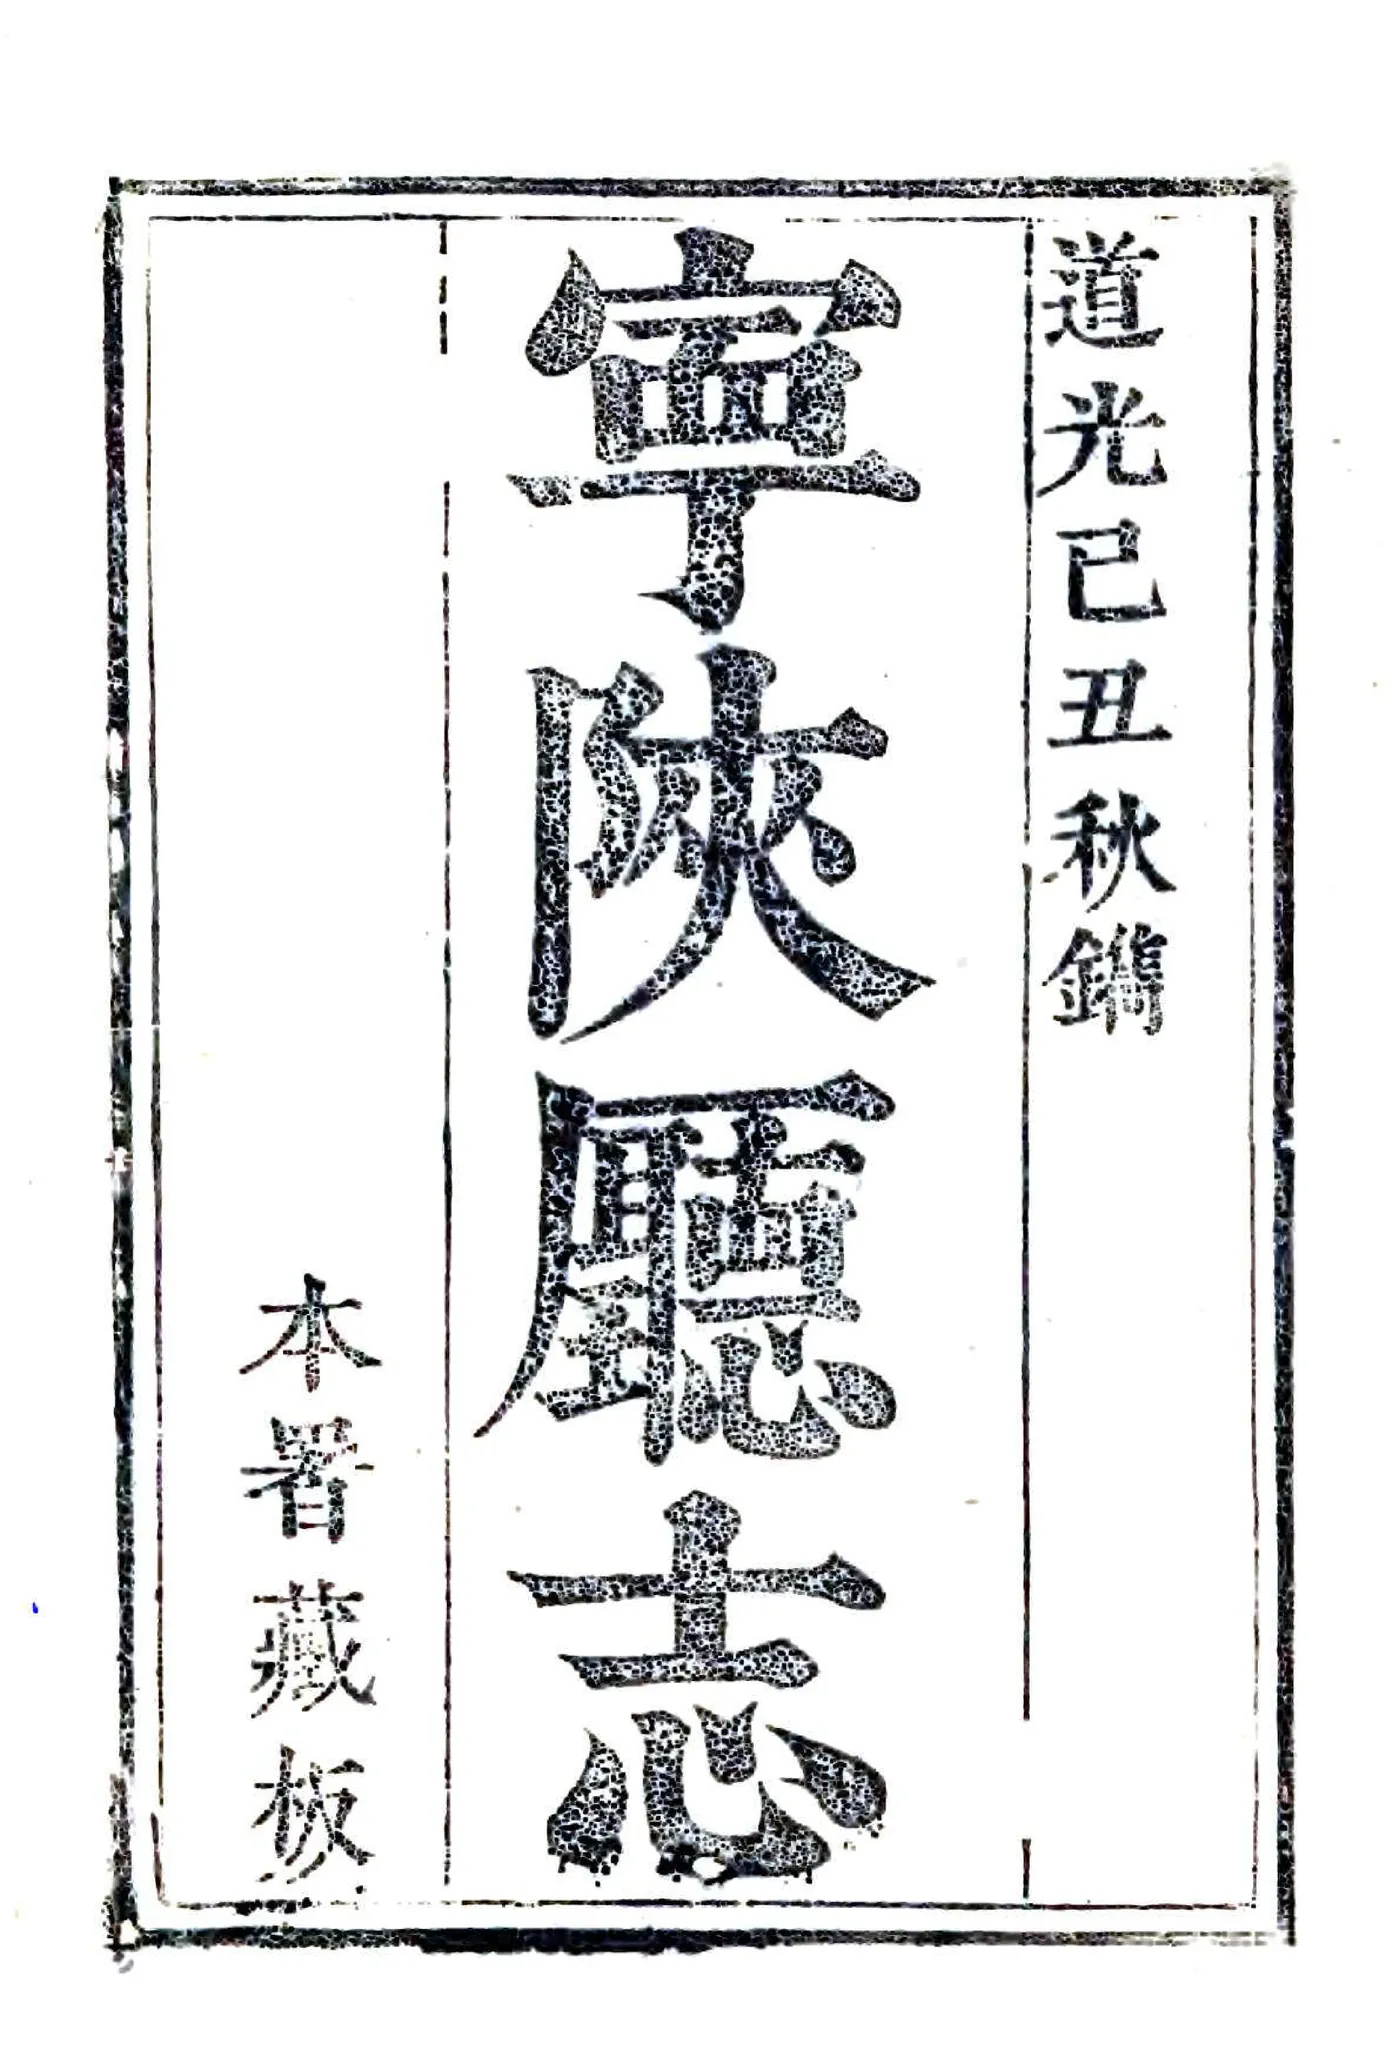 道光己丑秋鐫
寧陝廳志
本署藏板